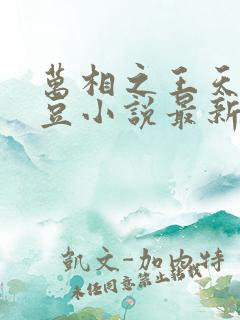 萬相之王天
豆小說最新
凱文-加內特
未經同意禁止轉載